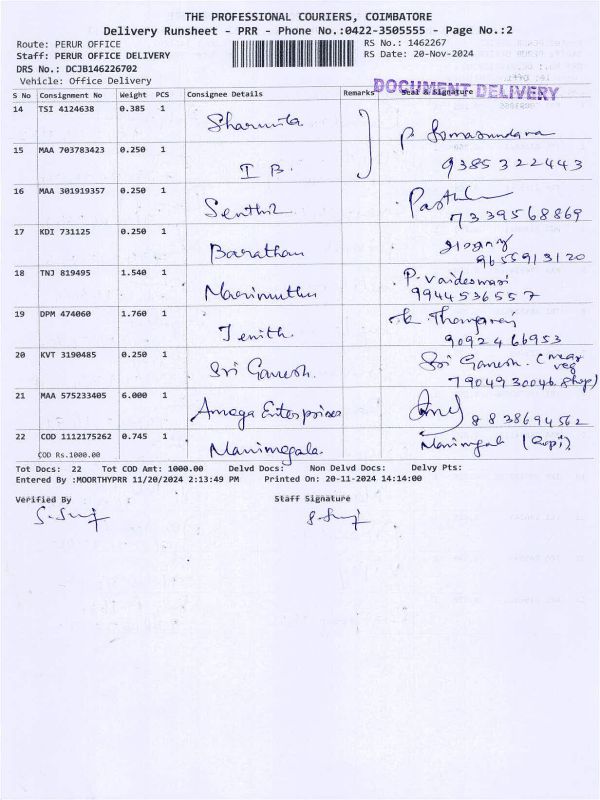 THE PROFESSIONAL COURIERS, COIMBATORE
Delivery Runsheet - PRR - Phone No.:0422-3505555 - Page No.:2
Route: PERUR OFFICE RS No.: 1462267
Staff: PERUR OFFICE DELIVERY RS Date: 20-Nov-2024
DRS No.: DCJB146226702
Vehicle: Office Delivery DOCUMENT DELIVERY
S No Consignment No Weight PCS Consignee Details Remarks Seal & Signature
14 TSI 4124638 0.385 1 Sharmila P. Somasundara
15 MAA 703783423 0.250 1 I B. 9385322443
16 MAA 301919357 0.250 1 Senthil
7339568869
17 KDI 731125 0.250 1 Barathan
9655913120
18 TNJ 819495 1.540 1 Marimuthu P. Vaideswari
9944536557
19 DPM 474060 1.760 1 Jenith. K. Thangaraj
9092466953
20 KVT 3190485 0.250 1 Sri Ganesh. Sri Ganesh. (near veg shop)
7904930046
21 MAA 575233405 6.000 1 Amega Enterprises 8838694562
22 COD 1112175262 0.745 1 Manimegala.
COD Rs.1000.00
Tot Docs: 22 Tot COD Amt: 1000.00 Delvd Docs: Non Delvd Docs: Delvy Pts:
Entered By :MOORTHYPRR 11/20/2024 2:13:49 PM Printed On: 20-11-2024 14:14:00
Verified By Staff Signature